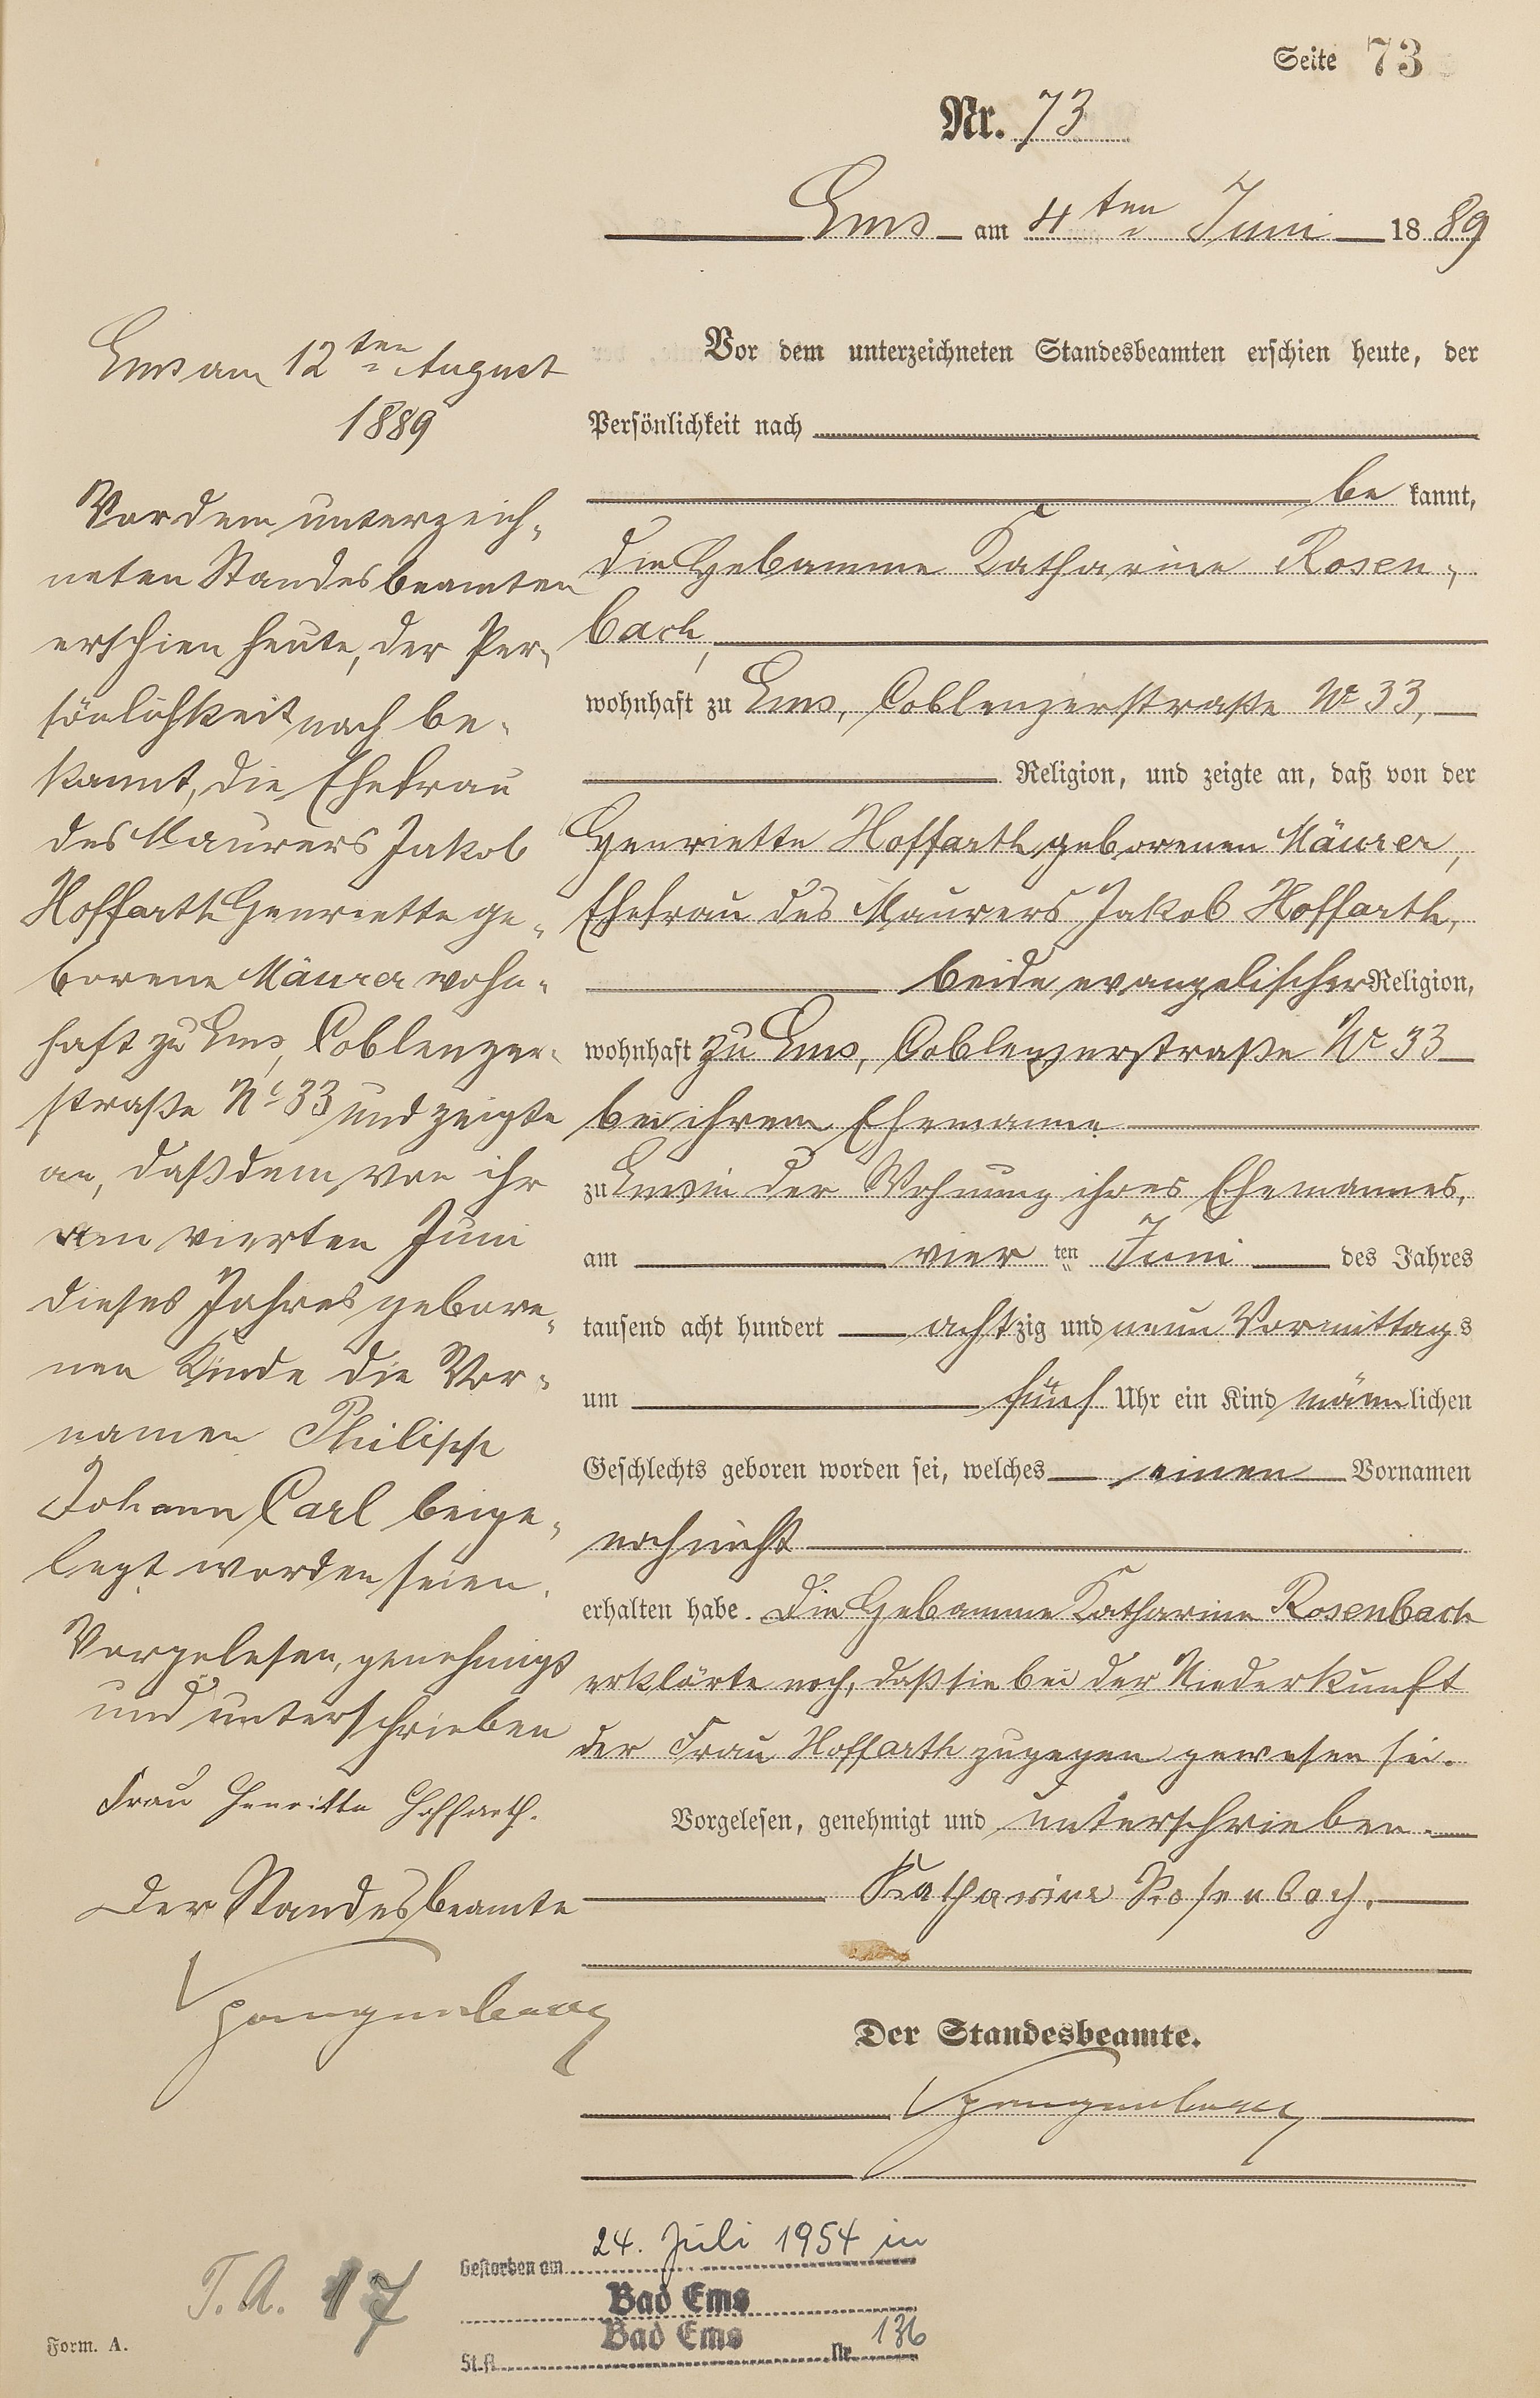 Seite 73
Nr. 73
Ems am 4ten Juni 1889
Vor dem unterzeichneten Standesbeamten erschien heute, der
Persönlichkeit nach
bekannt,
die Hebamme Katharine Rosen-
bach,
wohnhaft zu Ems, Coblenzerstraße No 33,
Religion, und zeigte an, daß von der
Henriette Hoffarth geborenen Mäurer,
Ehefrau des Maurers Jakob Hoffarth,
beide evangelischer Religion,
wohnhaft zu Ems, Coblenzerstraße No 33
bei ihrem Ehemanne
zu Ems in der Wohnung ihres Ehemannes,
am vierten Juni des Jahres
tausend acht hundert achtzig und neun Vormittags
um fünf Uhr ein Kind männlichen
Geschlechts geboren worden sei, welches einen Vornamen
noch nicht
erhalten habe. Die Hebamme Katharine Rosenbach
erklärte noch, daß sie bei der Niederkunft
der Frau Hoffarth zugegen gewesen sei.
Vorgelesen, genehmigt und unterschrieben.
Katharine Rosenbach.
Der Standesbeamte.
Spangenberg
Ems am 12ten August
1889
Vor dem unterzeich-
neten Standesbeamten
erschien heute, der Per-
sönlichkeit nach be-
kannt, die Ehefrau
des Maurers Jakob
Hoffarth Henriette ge-
borene Mäurer wohn-
haft zu Ems, Coblenzer-
straße No 33 und zeigte
an, daß dem, von ihr
am vierten Juni
dieses Jahres gebore-
nen Kinde die Vor-
namen Philipp
Johann Carl beige-
legt worden seien.
Vorgelesen, genehmigt
und unterschrieben
Frau Henritte Hoffarth.
Der Standesbeamte
Spangenberg
T. A. 17
Gestorben am 24. Juli 1954 in
Bad Ems
Bad Ems
St.A. Nr. 136
Form. A.